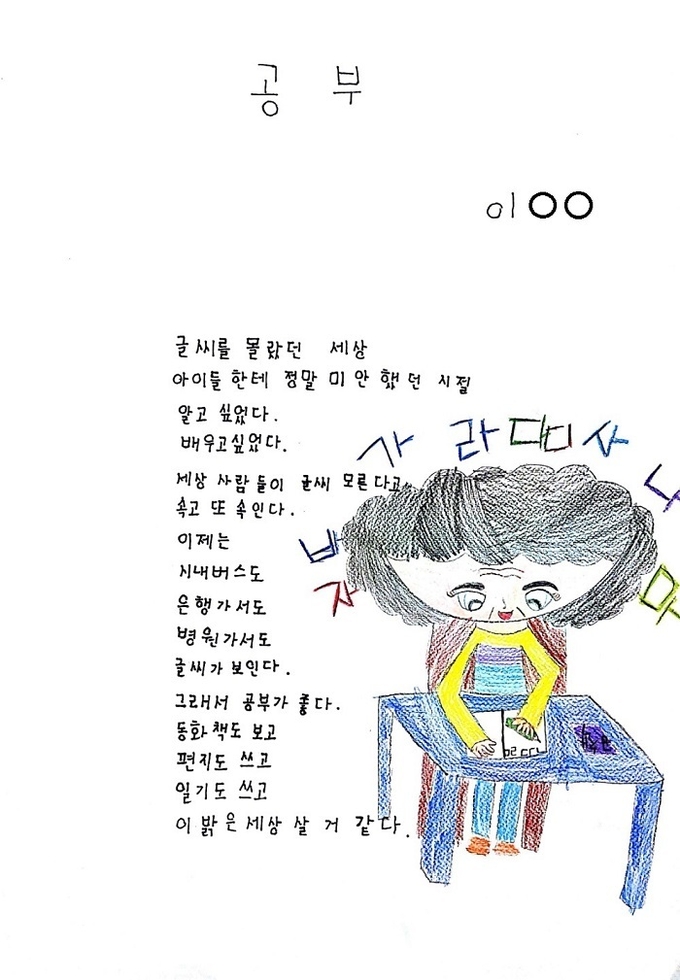 공 부
이○○
글씨를 몰랐던 세상
아이들한테 정말 미안했던 시절
알고 싶었다.
배우고싶었다.
세상 사람들이 글씨 모른다고
속고 또 속인다.
이제는
시내버스도
은행가서도
병원가서도
글씨가 보인다.
그래서 공부가 좋다.
동화책도 보고
편지도 쓰고
일기도 쓰고
이 밝은세상 살 거 같다.
가 라 다 디 사
나
바
자
마